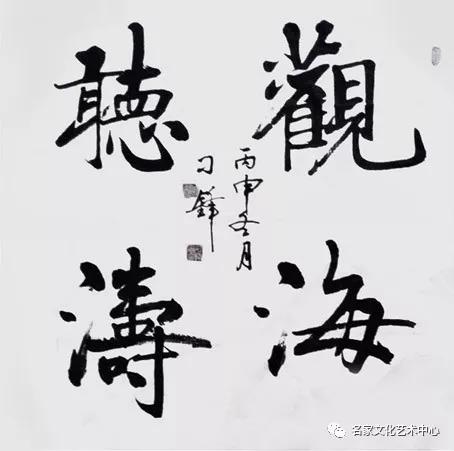 觀海
聽濤
丙申冬月
刁鋒
名家文化艺术中心